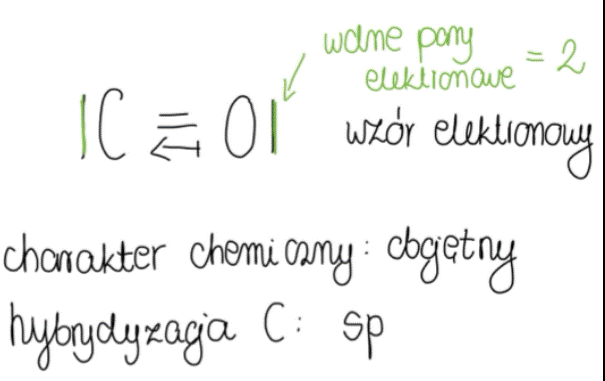 wolne pary
elektronowe = 2
|C ⇇ O|
wzór elektronowy
charakter chemiczny: obojętny
hybrydyzacja C: sp